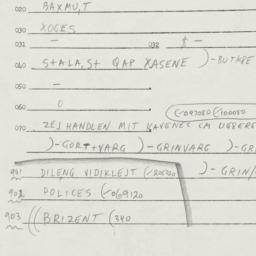 020 BAXMU,T
030 XOGES
031 — 032 $ —
040 S+ALA,S+ QAP XASENE )-BUTKEE
050 —
060 0
(-097080(-100050
070 ZEJ HANDLEN MIT KAVENES CM
)-GOR++VARG )-GRINVARG )-GR
901 DILENG VIDIKLEJT (-205200 )-GRIN
902 POLICES (-069120
903 ((BRIZENT (340